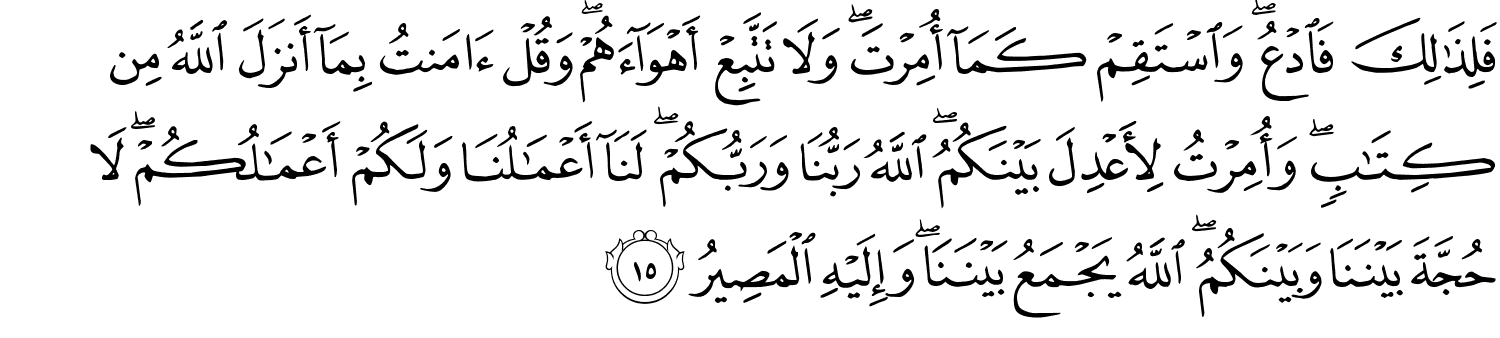 فَلِذَٰلِكَ فَٱدْعُ ۖ وَٱسْتَقِمْ كَمَآ أُمِرْتَ ۖ وَلَا تَتَّبِعْ أَهْوَآءَهُمْ ۖ وَقُلْ ءَامَنتُ بِمَآ أَنزَلَ ٱللَّهُ مِن
كِتَٰبٍ ۖ وَأُمِرْتُ لِأَعْدِلَ بَيْنَكُمُ ۖ ٱللَّهُ رَبُّنَا وَرَبُّكُمْ ۖ لَنَآ أَعْمَٰلُنَا وَلَكُمْ أَعْمَٰلُكُمْ ۖ لَا
حُجَّةَ بَيْنَنَا وَبَيْنَكُمُ ۖ ٱللَّهُ يَجْمَعُ بَيْنَنَا ۖ وَإِلَيْهِ ٱلْمَصِيرُ ١٥